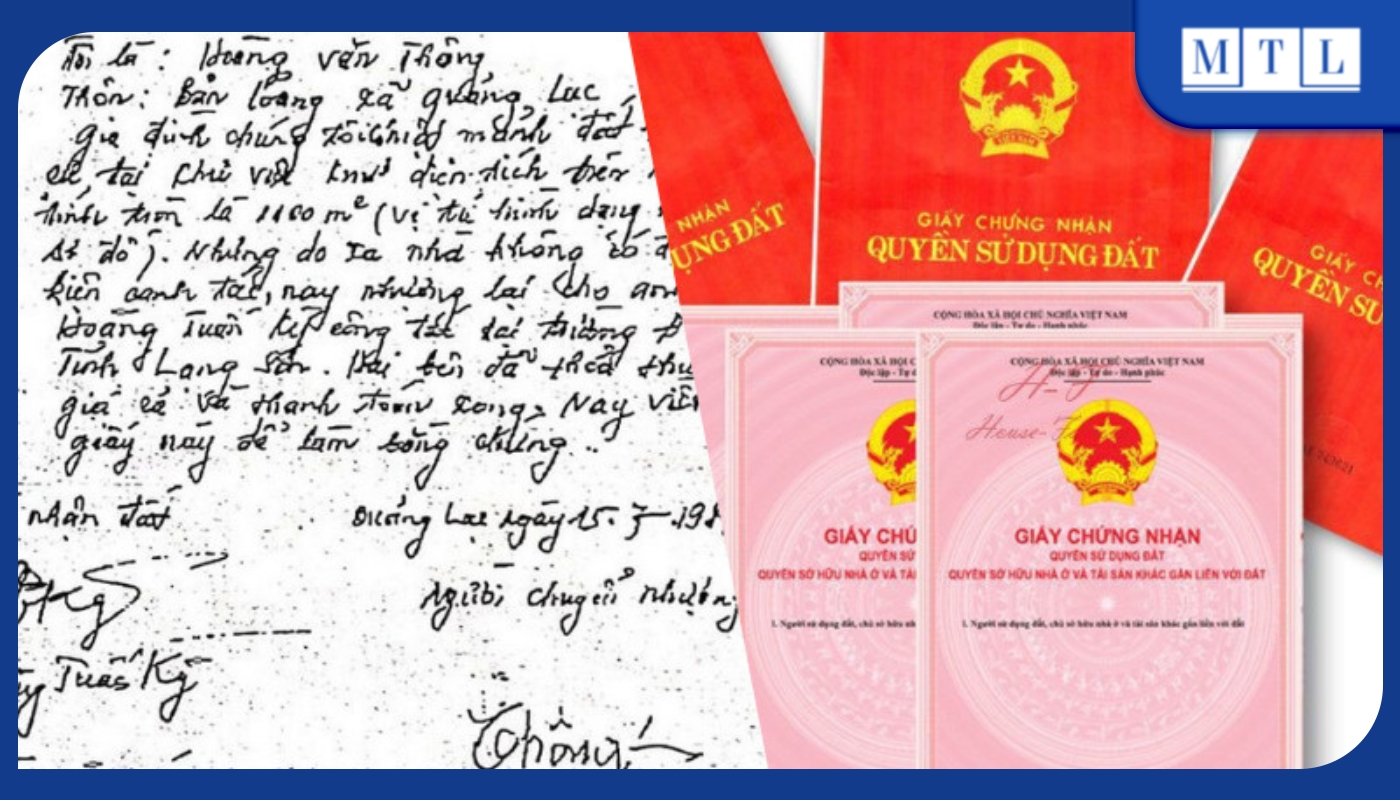 MTL
Tôi là : Hoàng văn Thông
Thôn: Bản loong xã quảng Lac
gia đình chúng tôi có mảnh đất
diện tích trên
tính tròn là 1100 m² (vị trí hình dạng
sơ đồ). Nhưng do xa nhà không có
kiện canh tác, nay nhường lại cho anh
Hoàng Tuấn Kỳ công tác tại trường
Tỉnh Lạng Sơn. Hai bên đã thoả
giá cả và thanh toán xong. Nay
giấy này để làm bằng chứng ..
nhận đất
Quảng Lạc ngày 15.
Người chuyển nhượng
Tuấn Kỳ
Thông
NHẬN
ỤNG ĐẤT
GIẤY CHỨNG NHẬN
QUYỀN SỬ DỤNG ĐẤT
GIẤY
QUYỀN SỬ
CỘNG HÒA XÃ HỘI CHỦ NGHĨA VIỆT NAM
Độc lập - Tự do - Hạnh phúc
CỘNG HÒA XÃ HỘI C
Độc lập - Tự d
GIẤY CHỨ
QUYỀN SỬ
QUYỀN SỞ HỮU NHÀ Ở VÀ TÀI
1. Người sử dụng đất, chủ sở hữu nhà
CỘNG HÒA XÃ HỘI CHỦ NGHĨA VIỆT NAM
Độc lập - Tự do - Hạnh phúc
GIẤY CHỨNG NHẬN
QUYỀN SỬ DỤNG ĐẤT
QUYỀN SỞ HỮU NHÀ Ở VÀ TÀI SẢN KHÁC GẮN LIỀN VỚI ĐẤT
1. Người sử dụng đất, chủ sở hữu nhà ở và tài sản khác gắn liền với đất